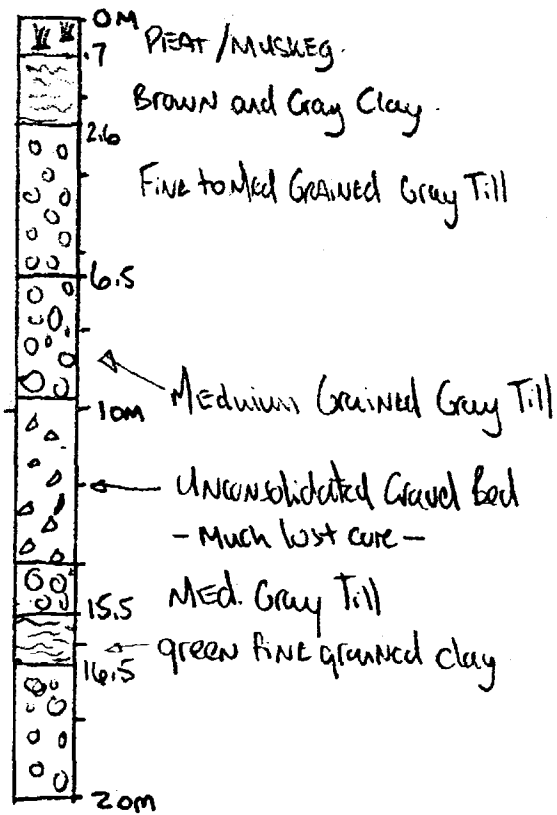 0M
.7 PEAT/MUSKEG.
Brown and Gray Clay.
2.6
Fine to Med Grained Gray Till
6.5
10M Medium Grained Gray Till
Unconsolidated Gravel Bed
- Much lost core -
15.5 Med. Gray Till
16.5 green fine grained clay
20M